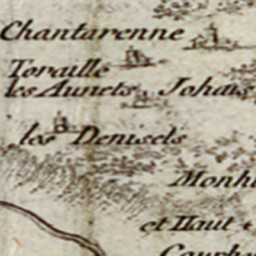 Chantarenne
Toraille
les Aunets
Johais
les Denisels
Monh
et Haut
Cauph